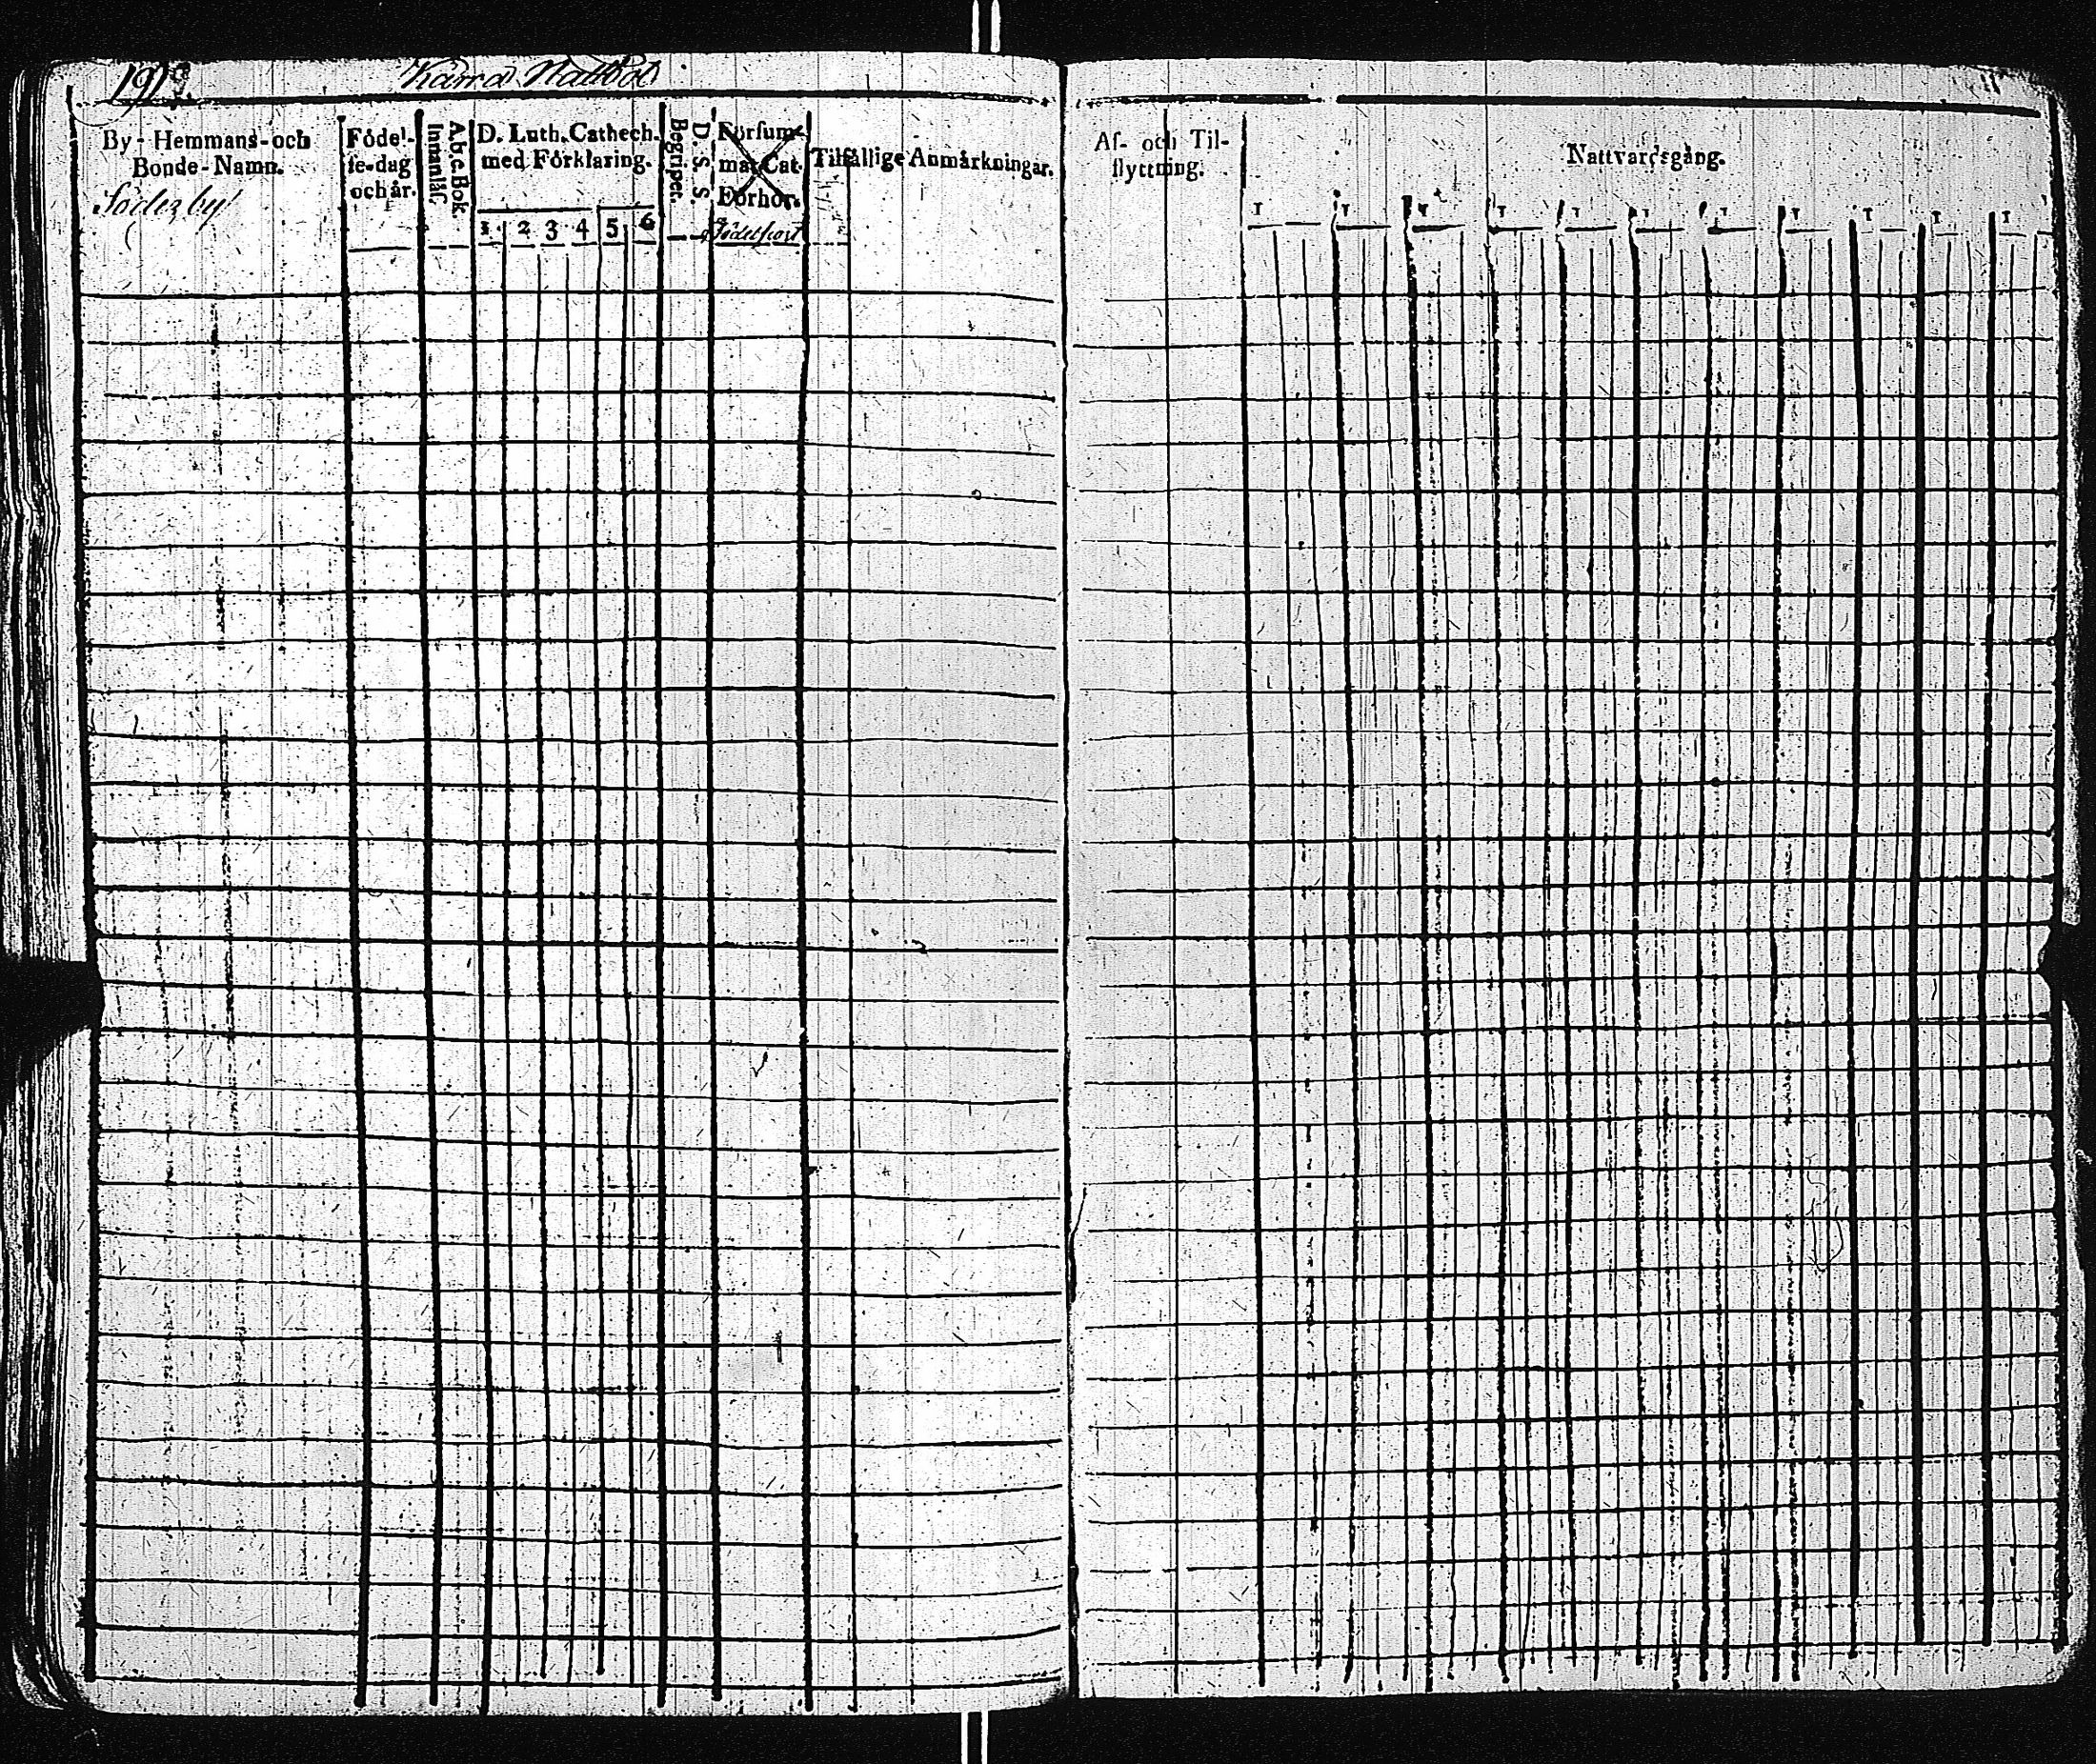 192.
Kärra Rattböl
By- Hemmans- och
Bonde-Namn.
Söderby
Födel-
se-dag
och år.
A.b.c. Bok.
Innanläs.
D. Luth. Cathech.
med Förklaring.
1 2 3 4 5 6
D. S. S.
Begripet.
Försum-
mat Cat.
Förhör.
Födelseort
Tilfällige Anmärkningar.
Af- och Til-
flyttning.
Nattvardsgång.
T T T T T T T T T T T